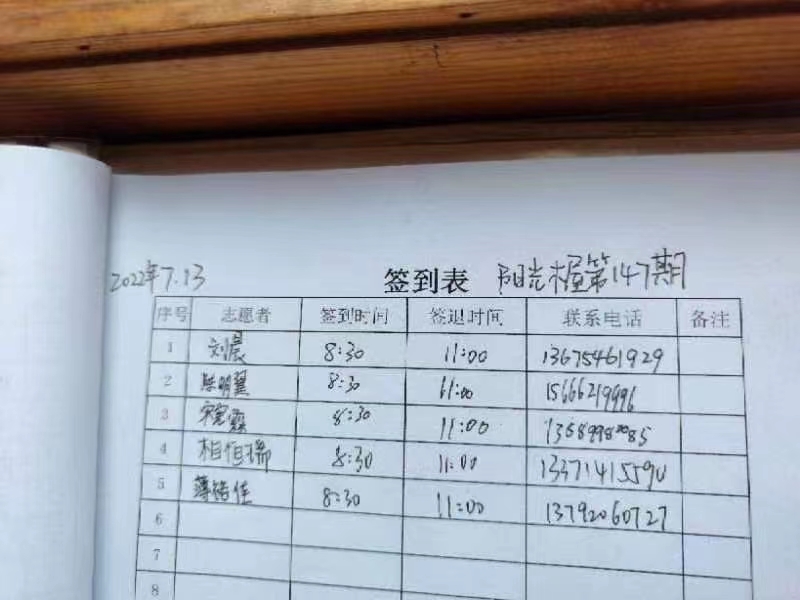 2022年7.13
签到表 阳光小屋第147期
序号 志愿者 签到时间 签退时间 联系电话 备注
1 刘晨 8:30 11:00 13675461929
2 陈明翼 8:30 11:00 15666219996
3 8:30 11:00
4 相恒瑞 8:30 11:00 13371415590
5 8:30 11:00 13792060727
6
7
8